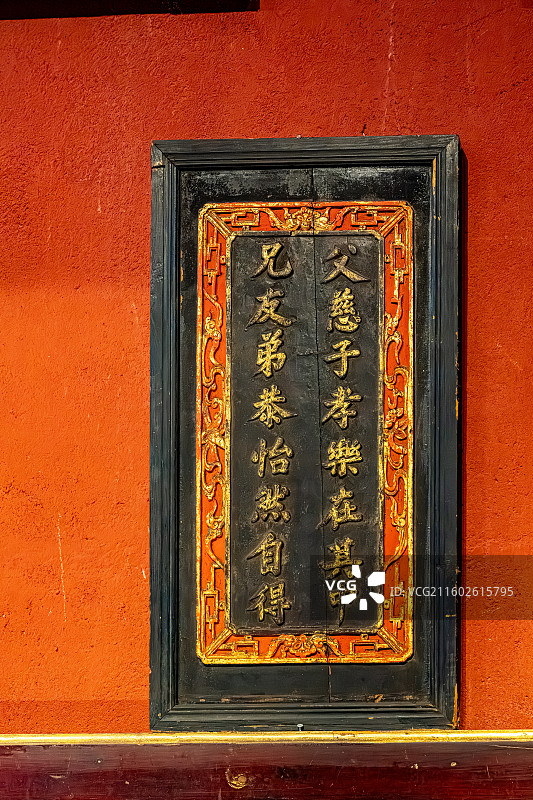 父慈子孝樂在其中
兄友弟恭怡然自得
VCG
ID:VCG211602615795